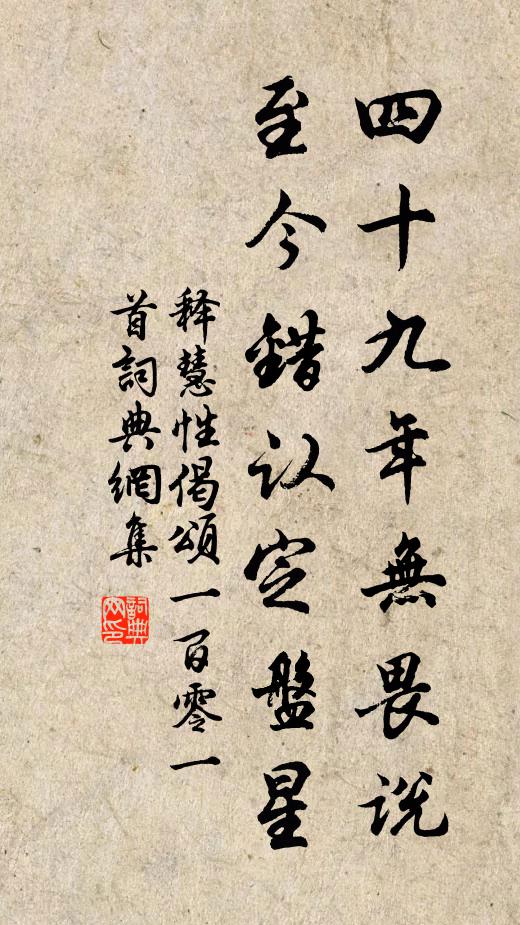 四十九年無畏说
至今錯认定盤星
释慧性偈頌一百零一
首詞典網集
詞典网印